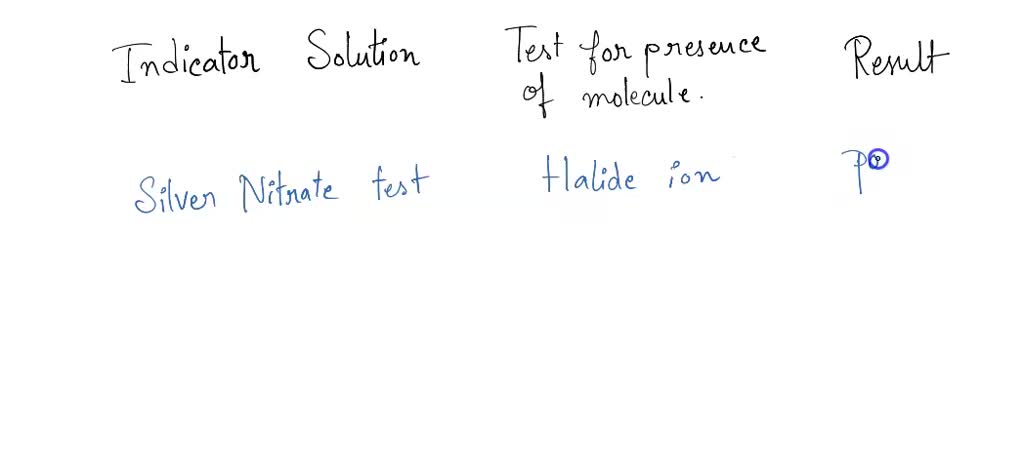 Indicator Solution
Test for presence
of molecule.
Result
Silver Nitrate test
Halide ion
Po